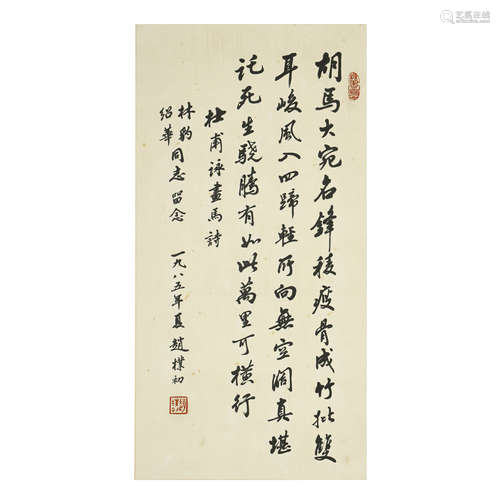 胡馬大宛名鋒稜瘦骨成竹批雙
耳峻風入四蹄輕所向無空闊真堪
託死生驍騰有如此萬里可橫行
杜甫詠畫馬詩
林豹
紹華同志留念
一九八五年夏趙樸初
艺典中国